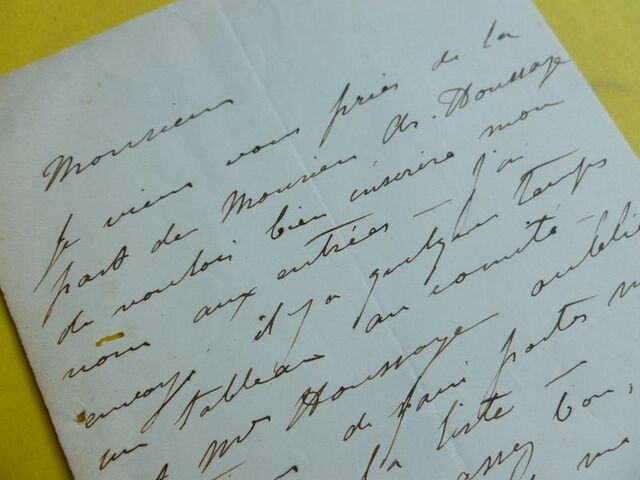 Monsieur
Je viens vous prier de la
part de Monsieur Ar. Houssaye
de vouloir bien inscrire mon
nom aux entrées — j'ai
envoyé il y a quelque temps
un tableau au comité —
et Mr Houssaye oublié
de faire partie
la liste —
assez bon,